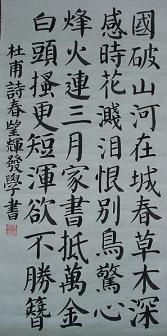 國破山河在城春草木深
感時花濺泪恨别鳥驚心
烽火連三月家書抵萬金
白頭搔更短渾欲不勝簪
杜甫詩春望輝發學書